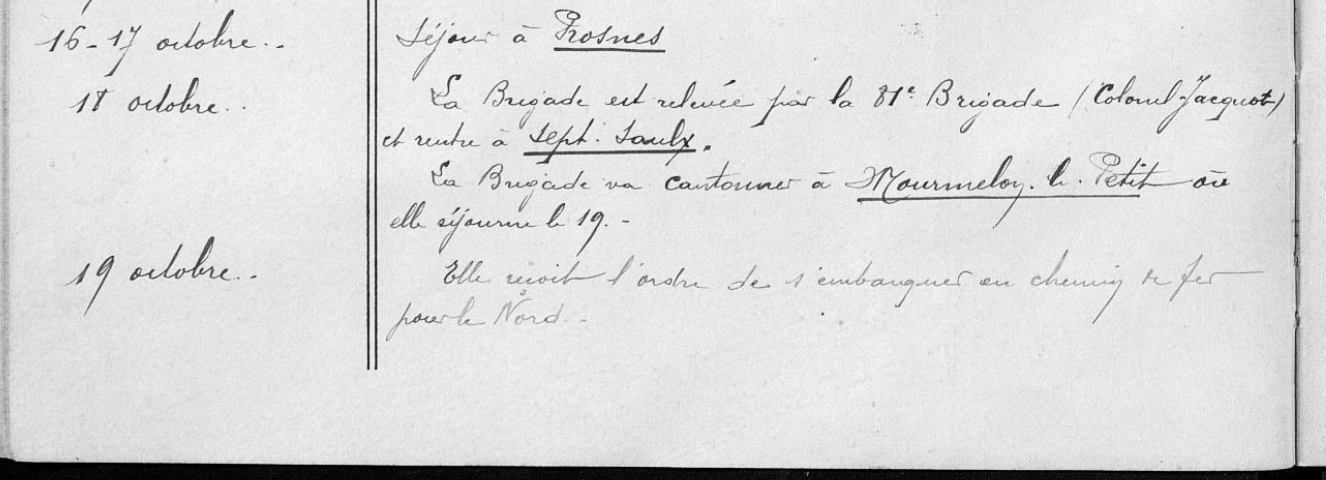 16-17 octobre.. Séjour à Prosnes
18 octobre.. La Brigade est relevée par la 81e Brigade (Colonel Jacquot)
et rentre à Sept-Saulx.
La Brigade va cantonner à Mourmelon-le-Petit où
elle séjourne le 19.-
19 octobre.. Elle reçoit l'ordre de s'embarquer en chemin de fer
pour le Nord.-